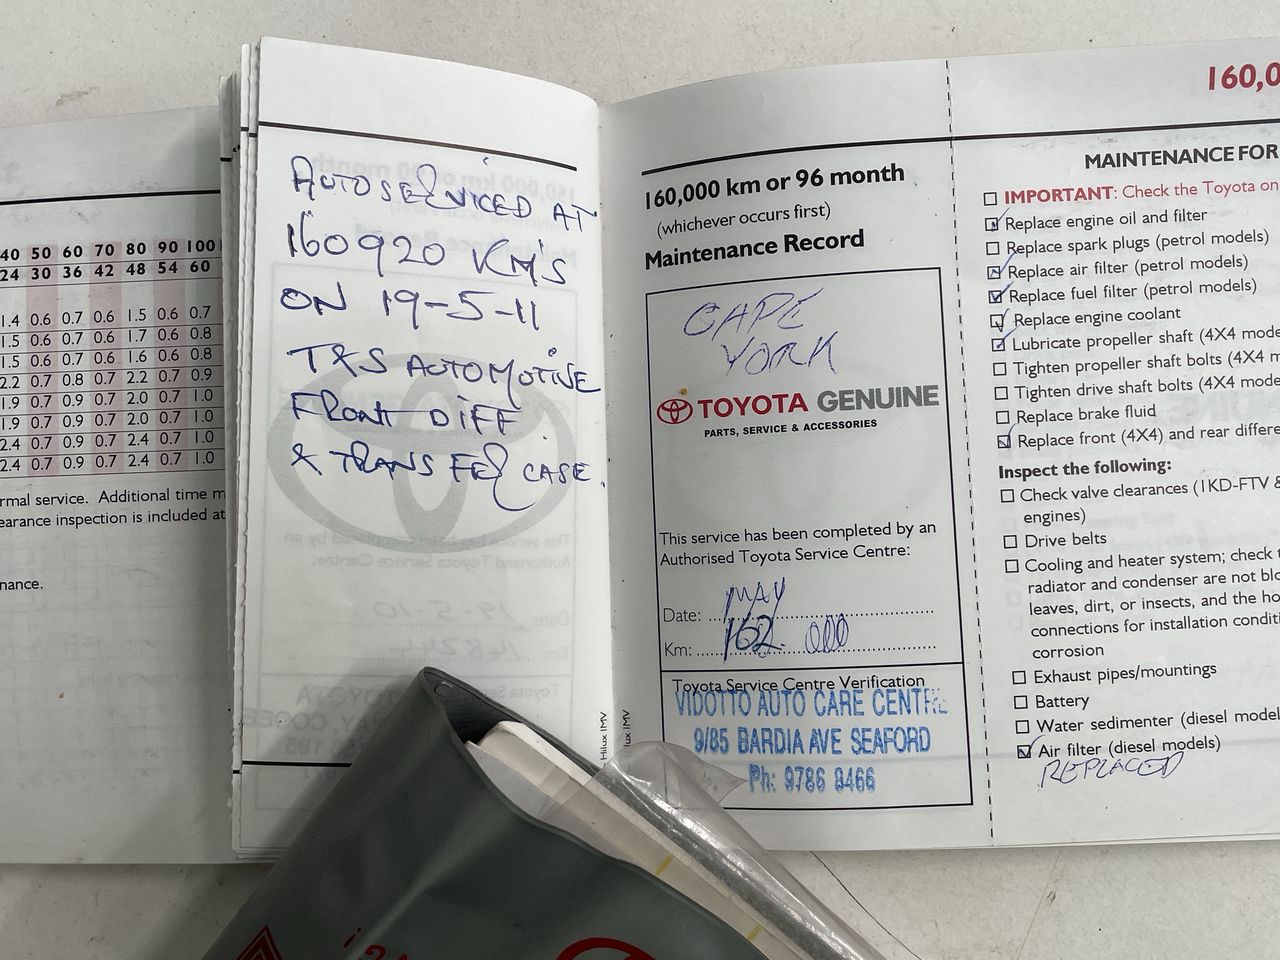 40 50 60 70 80 90 100
24 30 36 42 48 54 60
1.4 0.6 0.7 0.6 1.5 0.6 0.7
1.5 0.6 0.7 0.6 1.7 0.6 0.8
1.5 0.6 0.7 0.6 1.6 0.6 0.8
2.2 0.7 0.8 0.7 2.2 0.7 0.9
1.9 0.7 0.9 0.7 2.0 0.7 1.0
1.9 0.7 0.9 0.7 2.0 0.7 1.0
2.4 0.7 0.9 0.7 2.4 0.7 1.0
2.4 0.7 0.9 0.7 2.4 0.7 1.0
rmal service. Additional time m
earance inspection is included at
nance.
AUTOSERVICED AT
160920 KM'S
ON 19-5-11
T&S AUTOMOTIVE
FRONT DIFF
& TRANSFER CASE.
Hilux IMV
160,000 km or 96 month
(whichever occurs first)
Maintenance Record
CAPE
YORK
TOYOTA GENUINE
PARTS, SERVICE & ACCESSORIES
This service has been completed by an
Authorised Toyota Service Centre:
Date: MAY
Km: 162 000
Toyota Service Centre Verification
VIDOTTO AUTO CARE CENTRE
9/85 BARDIA AVE SEAFORD
Ph: 9786 8466
lux IMV
160,0
MAINTENANCE FOR
IMPORTANT: Check the Toyota on
Replace engine oil and filter
Replace spark plugs (petrol models)
Replace air filter (petrol models)
Replace fuel filter (petrol models)
Replace engine coolant
Lubricate propeller shaft (4X4 mode
Tighten propeller shaft bolts (4X4 m
Tighten drive shaft bolts (4X4 mode
Replace brake fluid
Replace front (4X4) and rear differe
Inspect the following:
Check valve clearances (1KD-FTV &
engines)
Drive belts
Cooling and heater system; check t
radiator and condenser are not blo
leaves, dirt, or insects, and the ho
connections for installation conditi
corrosion
Exhaust pipes/mountings
Battery
Water sedimenter (diesel model
Air filter (diesel models)
REPLACED